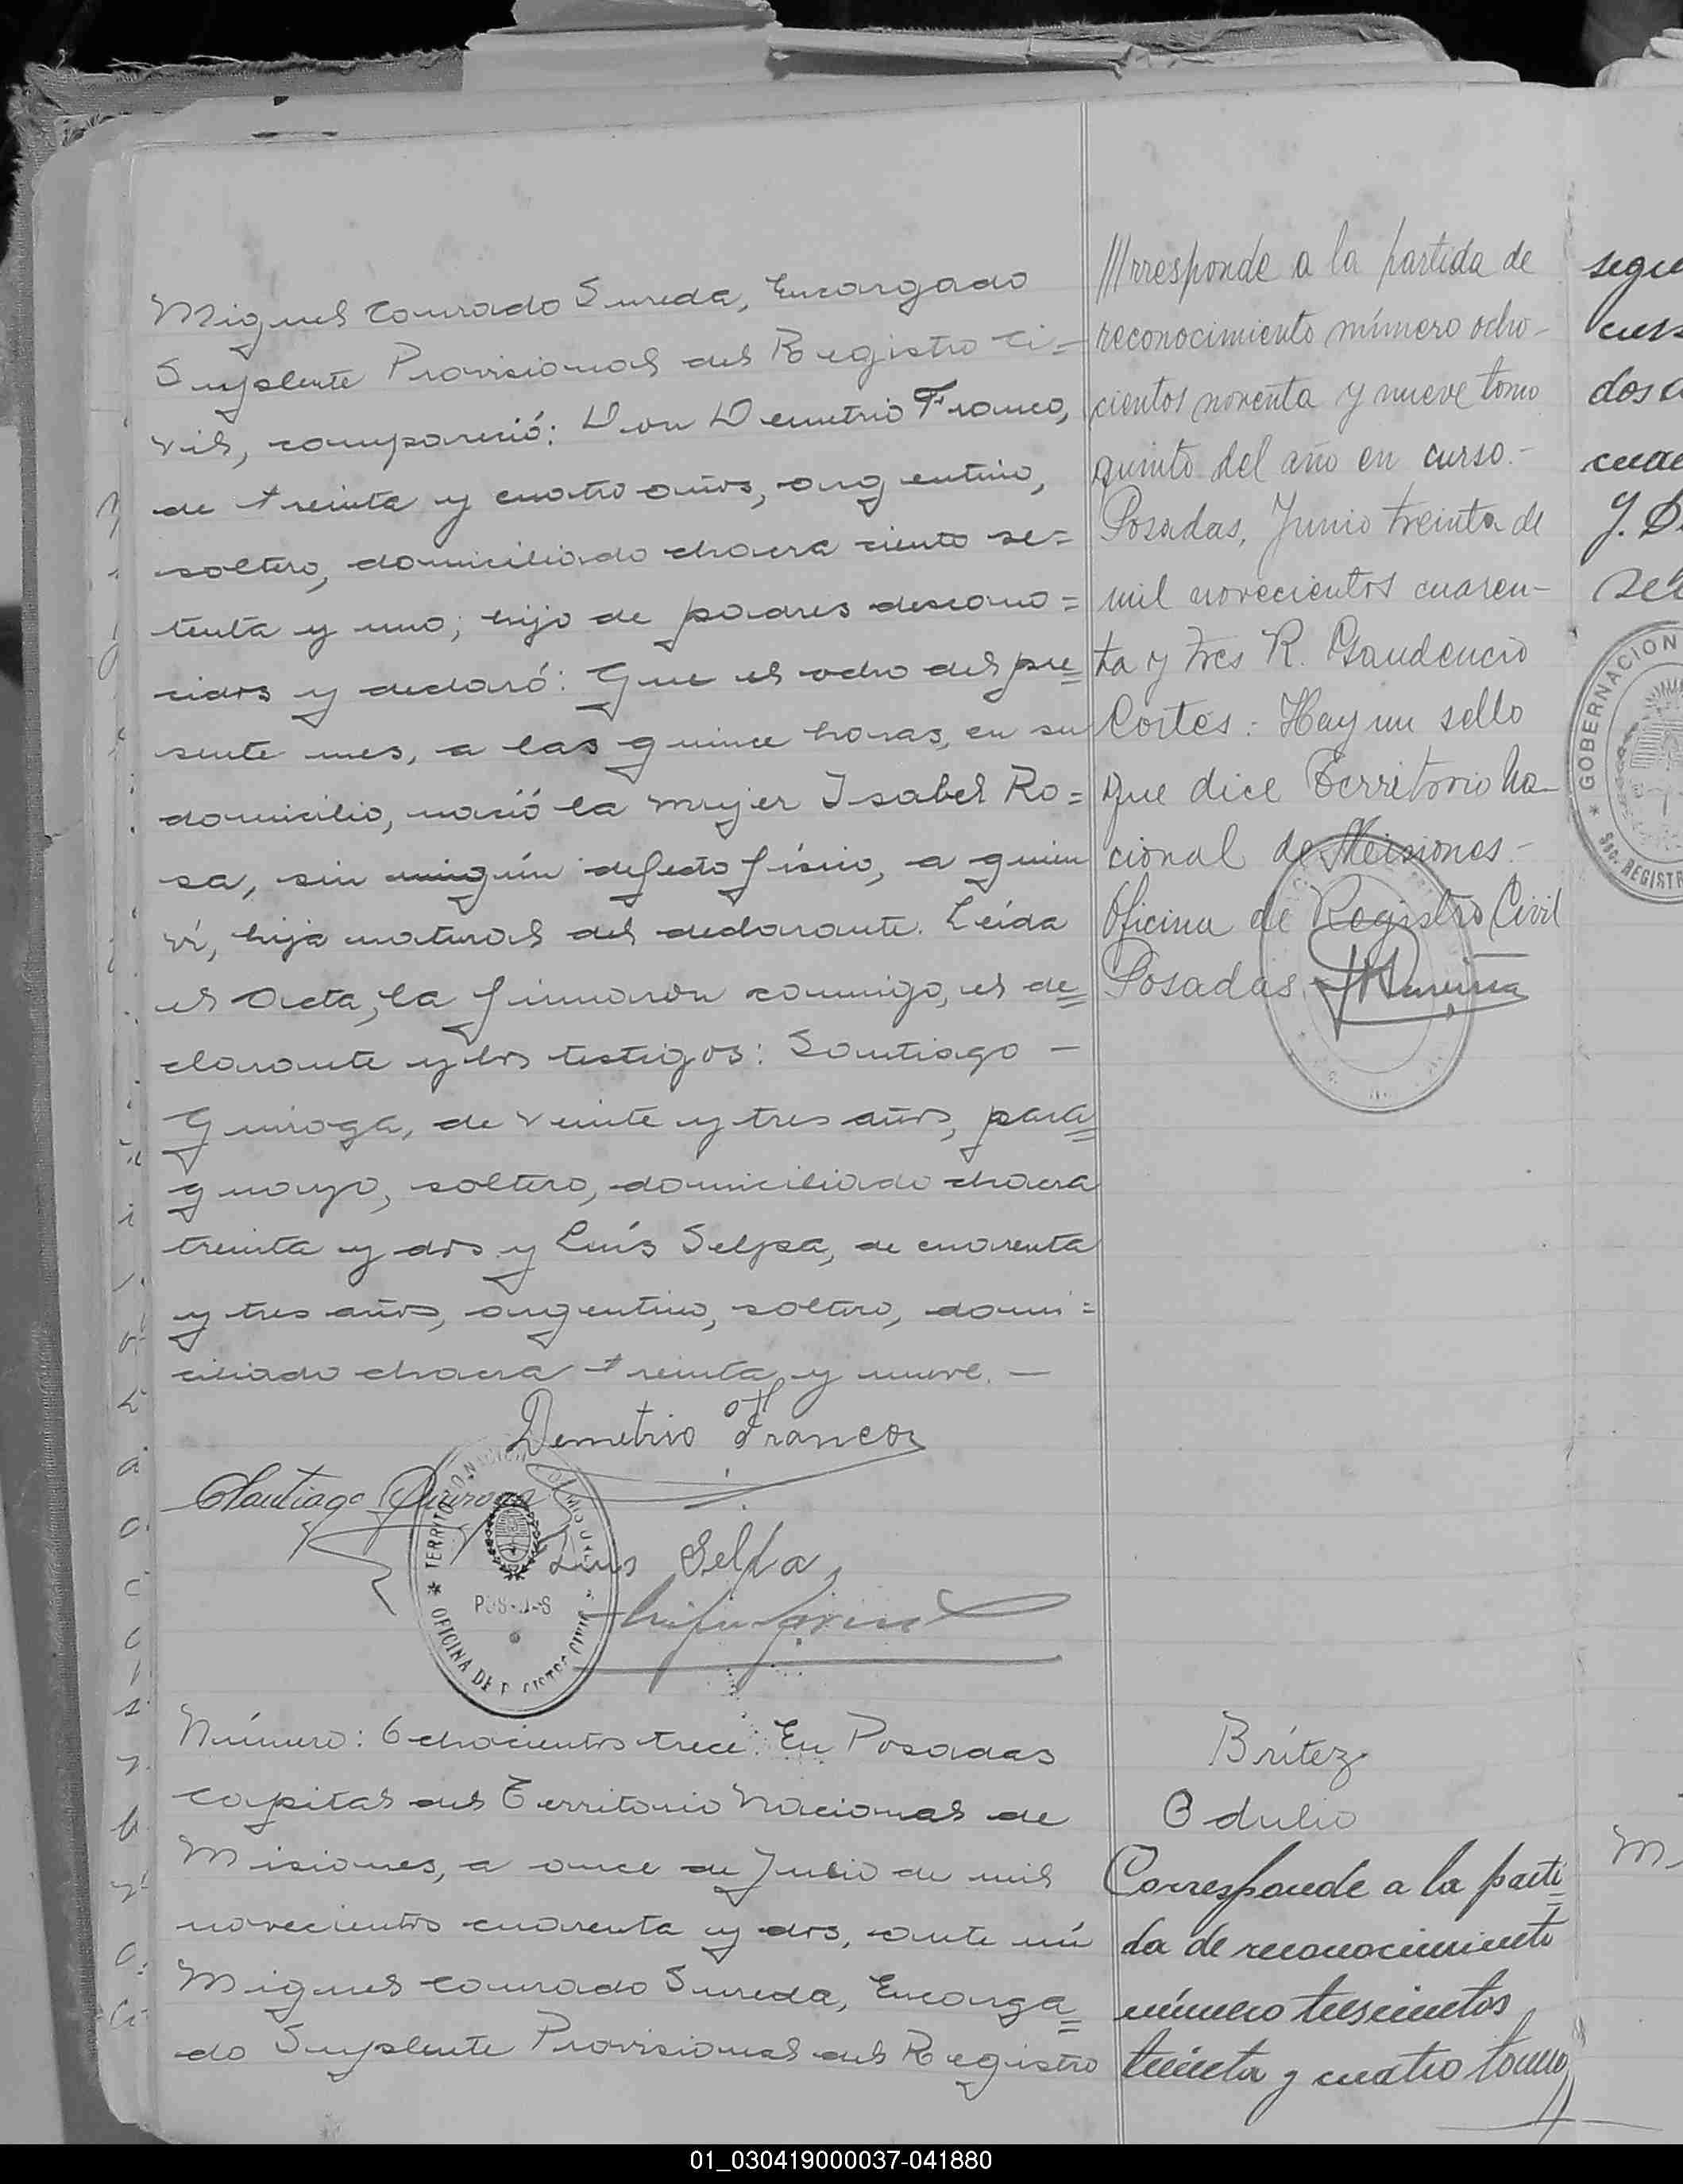 Miguel Conrado Sureda, Encargado
Suplente Provisional del Registro Ci=
vil, compareció: Don Demetrio Franco,
de treinta y cuatro años, argentino,
soltero, domiciliado chacra ciento se=
tenta y uno; hijo de padres descono=
cidos y declaró: Que el ocho del pre=
sente mes, a las quince horas, en su
domicilio, nació la mujer Isabel Ro=
sa, sin ningún defecto físico, a quien
ví, hija natural del declarante. Leída
el Acta, la firmaron conmigo, el de=
clarante y los testigos: Santiago —
Quiroga, de veinte y tres años, para=
guayo, soltero, domiciliado chacra
treinta y dos y Luís Selpa, de cuarenta
y tres años, argentino, soltero, domi=
ciliado chacra treinta y nueve. —
Demetrio Franco
Santiago Quiroga
Luis Selpa
TERRITORIO NACIONAL DE MISIONES
POSADAS
OFICINA DE REGISTRO CIVIL
Número: Ochocientos trece. En Posadas
Capital del Territorio Nacional de
Misiones, a once de Julio de mil
novecientos cuarenta y dos, ante mí
Miguel Conrado Sureda, Encarga=
do Suplente Provisional del Registro
///rresponde a la partida de
reconocimiento número ocho-
cientos noventa y nueve tomo
quinto del año en curso.-
Posadas, Junio treinta de
mil novecientos cuaren-
ta y tres R. Gaudencio
Cortés: Hay un sello
que dice Territorio Na-
cional de Misiones.-
Oficina de Registro Civil
Posadas
Brítez
Odulio
Corresponde a la parti=
da de reconocimiento
número trescientos
treinta y cuatro tomo
segu
curs
dos c
cua
GOBERNACION
REGISTR
01_030419000037-041880